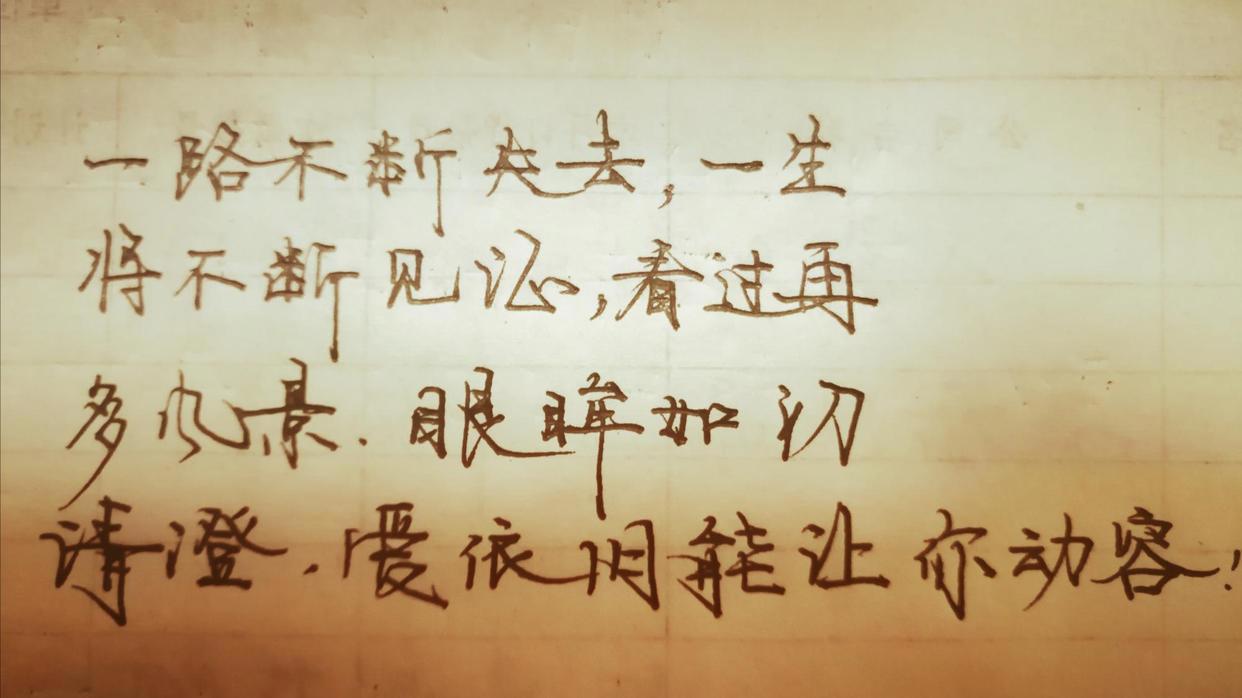 一路不断失去,一生
将不断见证,看过再
多风景.眼眸如初
清澄.爱依旧能让你动容!